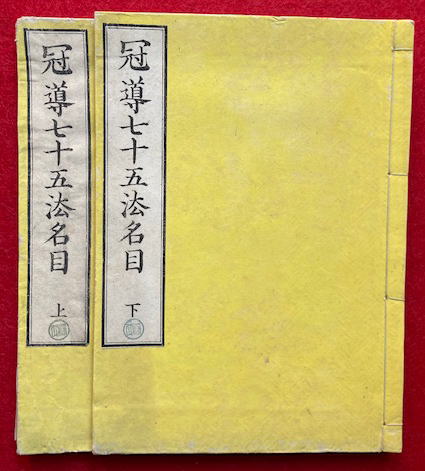 冠導七十五法名目 下
冠導七十五法名目 上